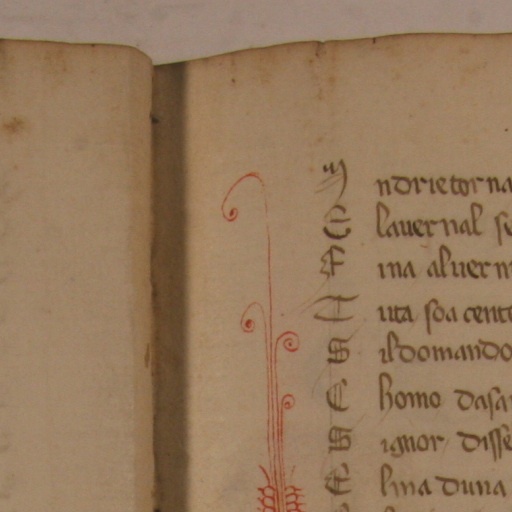 Indrietorna
E lauernal se
F ina aluern
T uta soa cent
S ildomando
E lhomo dasa
S ignor disse
E lina duna